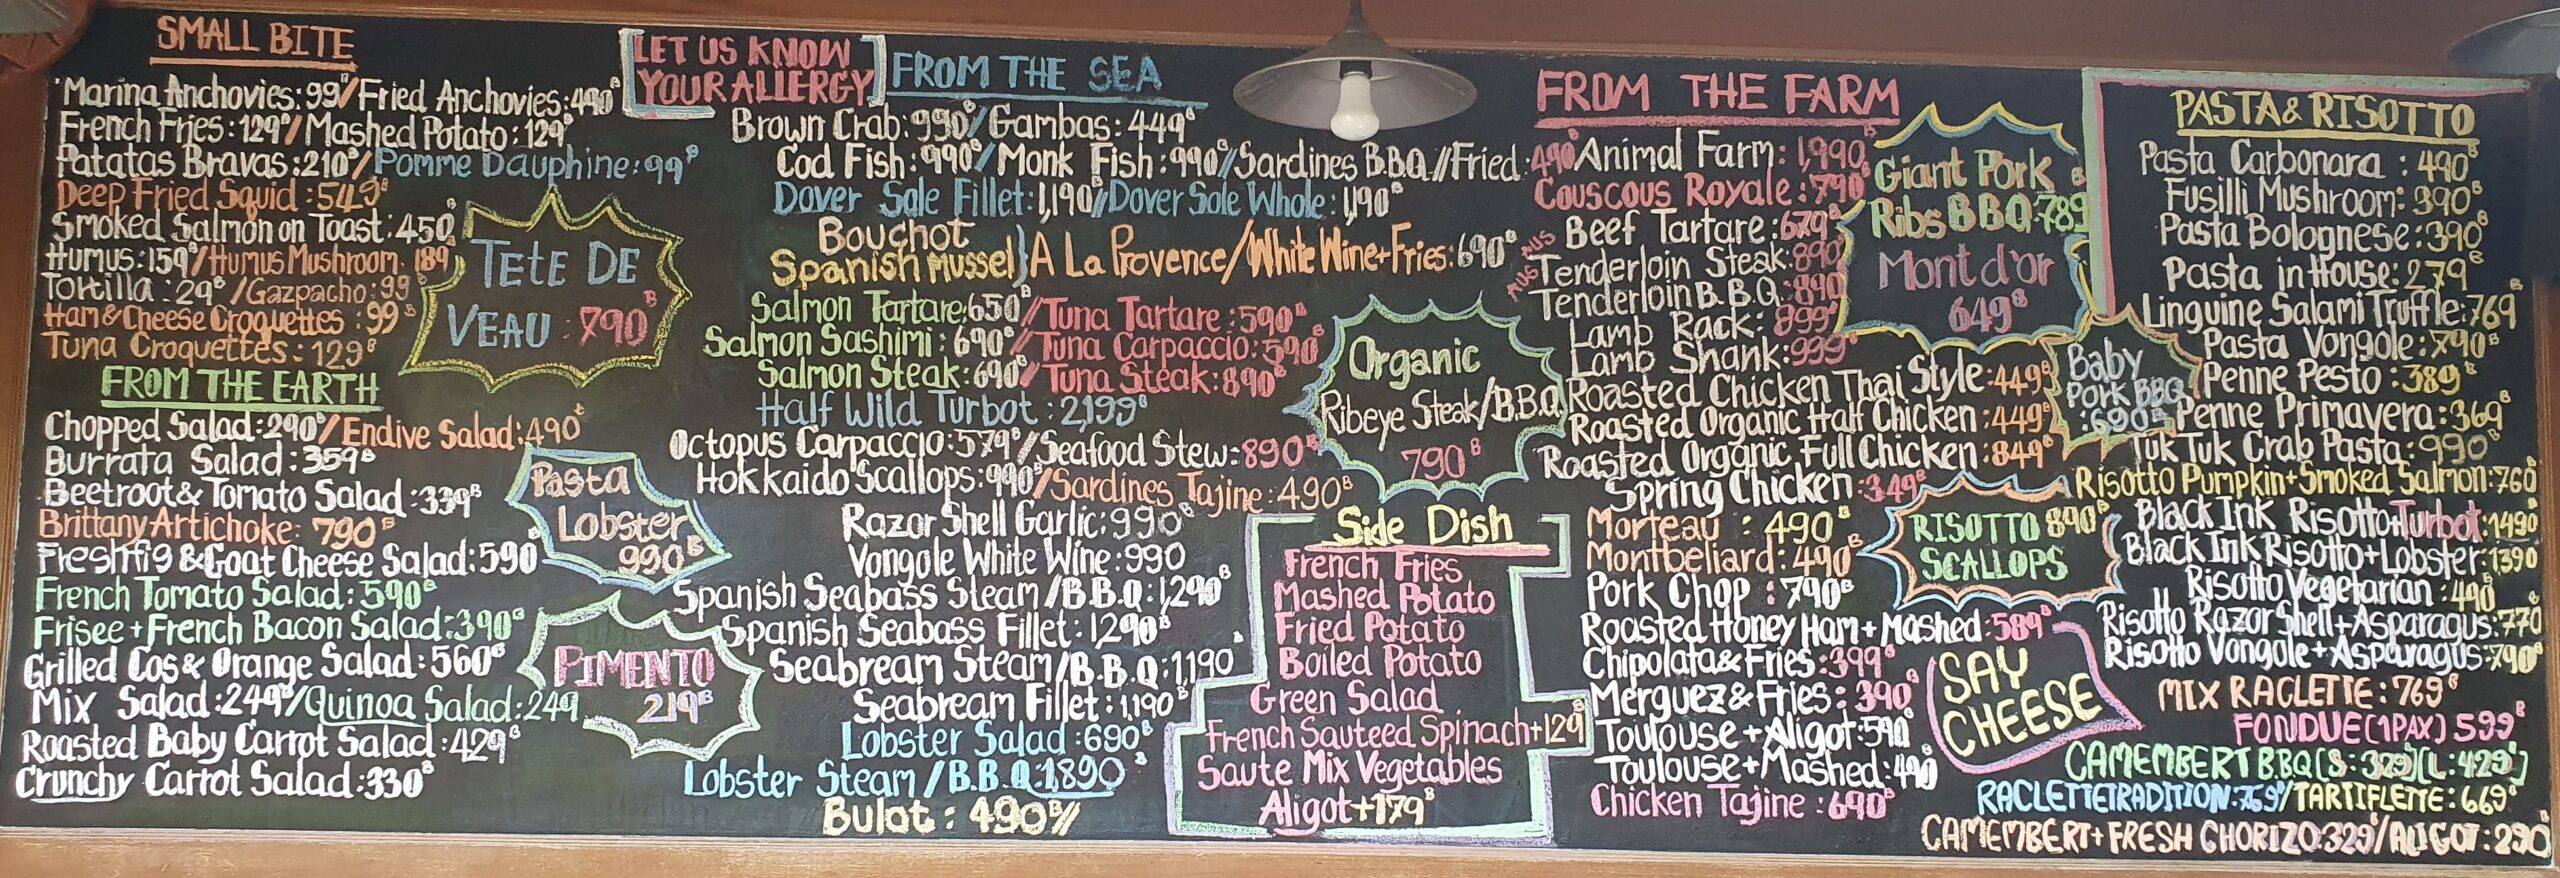 SMALL BITE
Marina Anchovies: 99฿/Fried Anchovies: 490฿
French Fries: 129฿/Mashed Potato: 129฿
Patatas Bravas: 210฿/Pomme Dauphine: 99฿
Deep Fried Squid: 549฿
Smoked Salmon on Toast: 450฿
Humus: 159฿/Humus Mushroom. 189฿
Tortilla: 29฿/Gazpacho: 99฿
Ham & Cheese Croquettes: 99฿
Tuna Croquettes: 129฿
TETE DE
VEAU: 790฿
FROM THE EARTH
Chopped Salad: 290฿/Endive Salad: 490฿
Burrata Salad: 359฿
Beetroot & Tomato Salad: 339฿
Brittany Artichoke: 790฿
Freshfig & Goat Cheese Salad: 590฿
French Tomato Salad: 590฿
Frisee + French Bacon Salad: 390฿
Grilled Cos & Orange Salad: 560฿
Mix Salad: 249฿/Quinoa Salad: 249
Roasted Baby Carrot Salad: 429฿
Crunchy Carrot Salad: 330฿
Pasta
Lobster
990฿
PIMENTO
219฿
LET US KNOW
YOUR ALLERGY
FROM THE SEA
Brown Crab: 990฿/Gambas: 449฿
Cod Fish: 990฿/Monk Fish: 990฿/Sardines B.B.Q//Fried: 490฿
Dover Sole Fillet: 1,190฿/Dover Sole Whole: 1,190฿
Bouchot
Spanish Mussel} A La Provence/White Wine+Fries: 690฿
Salmon Tartare: 650฿/Tuna Tartare: 590฿
Salmon Sashimi: 690฿/Tuna Carpaccio: 590฿
Salmon Steak: 690฿/Tuna Steak: 890฿
Half Wild Turbot: 2,199฿
Octopus Carpaccio: 579฿/Seafood Stew: 890฿
Hokkaido Scallops: 990฿/Sardines Tajine: 490฿
Razor Shell Garlic: 990฿
Vongole White Wine: 990
Spanish Seabass Steam/B.B.Q: 1,290฿
Spanish Seabass Fillet: 1,290฿
Seabream Steam/B.B.Q: 1,190฿
Seabream Fillet: 1,190฿
Lobster Salad: 690฿
Lobster Steam/B.B.Q: 1,890฿
Bulot: 490฿//
Organic
Ribeye Steak/B.B.Q
790฿
Side Dish
French Fries
Mashed Potato
Fried Potato
Boiled Potato
Green Salad
French Sauteed Spinach+129฿
Saute Mix Vegetables
Aligot+179฿
FROM THE FARM
Animal Farm: 1,990฿
Couscous Royale: 790฿
Beef Tartare: 679฿
AUS Tenderloin Steak: 890฿
AUS Tenderloin B.B.Q: 890฿
Lamb Rack: 899฿
Lamb Shank: 999฿
Roasted Chicken Thai Style: 449฿
Roasted Organic Half Chicken: 449฿
Roasted Organic Full Chicken: 849฿
Spring Chicken: 349฿
Morteau: 490฿
Montbeliard: 490฿
Pork Chop: 790฿
Roasted Honey Ham + Mashed: 589฿
Chipolata & Fries: 399฿
Merguez & Fries: 390฿
Toulouse + Aligot: 590฿
Toulouse + Mashed: 490฿
Chicken Tajine: 690฿
Giant Pork
Ribs B.B.Q: 789฿
Mont d'or
649฿
Baby
Pork BBQ
: 690฿
RISOTTO 890฿
SCALLOPS
PASTA & RISOTTO
Pasta Carbonara: 490฿
Fusilli Mushroom: 390฿
Pasta Bolognese: 390฿
Pasta in House: 279฿
Linguine Salami Truffle: 769฿
Pasta Vongole: 790฿
Penne Pesto: 389฿
Penne Primavera: 369฿
Tuk Tuk Crab Pasta: 990฿
Risotto Pumpkin+Smoked Salmon: 760฿
Black Ink Risotto+Turbot: 1490฿
Black Ink Risotto+Lobster: 1390
Risotto Vegetarian: 490฿
Risotto Razor Shell+Asparagus: 770฿
Risotto Vongole+Asparagus: 790฿
SAY
CHEESE
MIX RACLETTE: 769฿
FONDUE (1PAX) 599฿
CAMEMBERT B.B.Q (S: 329฿)(L: 429฿)
RACLETTE TRADITION: 769฿/TARTIFLETTE: 669฿
CAMEMBERT+FRESH CHORIZO: 329฿/ALIGOT: 290฿